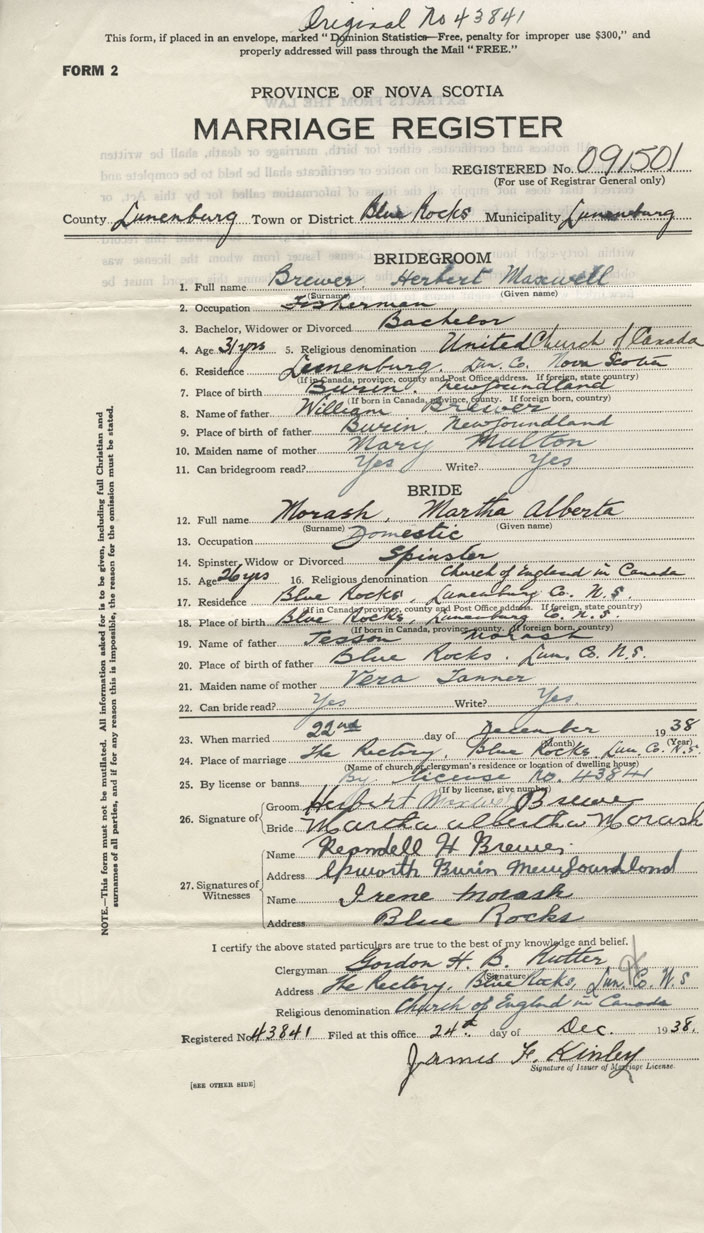 Original No 43841
This form, if placed in an envelope, marked "Dominion Statistics—Free, penalty for improper use $300," and
properly addressed will pass through the Mail "FREE."
FORM 2
PROVINCE OF NOVA SCOTIA
MARRIAGE REGISTER
REGISTERED No. 091501
(For use of Registrar General only)
County Lunenburg Town or District Blue Rocks Municipality Lunenburg
BRIDEGROOM
1. Full name Brewer Herbert Maxwell
(Surname) (Given name)
2. Occupation Fisherman
3. Bachelor, Widower or Divorced Bachelor
4. Age 31 yrs 5. Religious denomination United Church of Canada
6. Residence Lunenburg. Lun. Co. Nova Scotia
(If in Canada, province, county and Post Office address. If foreign, state country)
7. Place of birth Burin. Newfoundland
(If born in Canada, province, county. If foreign born, country)
8. Name of father William Brewer
9. Place of birth of father Burin, Newfoundland
10. Maiden name of mother Mary Multon
11. Can bridegroom read? Yes Write? Yes
BRIDE
12. Full name Morash, Martha Alberta
(Surname) (Given name)
13. Occupation Domestic
14. Spinster, Widow or Divorced Spinster
15. Age 26 yrs 16. Religious denomination Church of England in Canada
17. Residence Blue Rocks, Lunenburg Co. N.S.
(If in Canada, province, county and Post Office address. If foreign, state country)
18. Place of birth Blue Rocks, Lunenburg Co. N.S.
(If born in Canada, province, county. If foreign born, country)
19. Name of father Morash
20. Place of birth of father Blue Rocks. Lun. Co. N.S.
21. Maiden name of mother Vera Tanner
22. Can bride read? Yes Write? Yes.
23. When married 22nd day of December 1938
(Month) (Year)
24. Place of marriage The Rectory, Blue Rocks, Lun. Co. N.S.
(Name of church or clergyman's residence or location of dwelling house)
25. By license or banns By license no. 43841
(If by license, give number)
26. Signature of
Groom Herbert Maxwell Brewer
Bride Martha Albertha Morash
27. Signatures of Witnesses
Name H Brewer
Address Epworth Burin Newfoundland
Name Irene Morash
Address Blue Rocks
I certify the above stated particulars are true to the best of my knowledge and belief.
Clergyman Gordon H. B. Rutter
(Signature)
Address The Rectory, Blue Rocks, Lun. Co. N.S
Religious denomination Church of England in Canada
Registered No. 43841 Filed at this office 24th day of Dec. 1938.
James F. Kinley
Signature of Issuer of Marriage License.
[SEE OTHER SIDE]
NOTE.—This form must not be mutilated. All information asked for is to be given, including full Christian and
surnames of all parties, and if for any reason this is impossible, the reason for the omission must be stated.